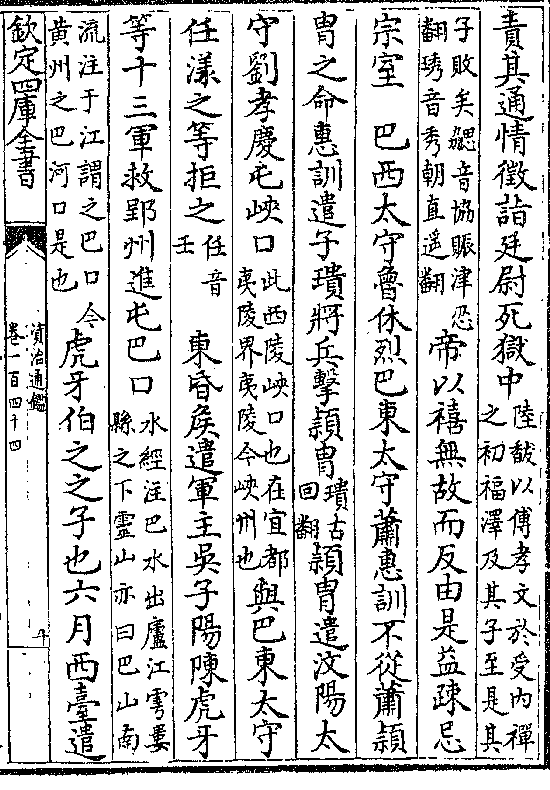 責其通情徵詣廷尉死獄中陸馛以傅孝文於受内禪
之初福澤及其子至是其
子敗矣勰音協賑津忍
翻琇音秀朝直遥翻帝以禧無故而反由是益疎忌
宗室 巴西太守魯休烈巴東太守蕭惠訓不從蕭頴
胄之命惠訓遣子璝將兵擊頴胄璝古
回翻頴胄遣汶陽太
守劉孝慶屯峽口此西陵峽口也在宜都
夷陵界夷陵今峽州也與巴東太守
任漾之等拒之任音
壬 東昏侯遣軍主吳子陽陳虎牙
等十三軍救郢州進屯巴口水經注巴水出廬江雩婁
縣之下靈山亦曰巴山南
流注于江謂之巴口今
黄州之巴河口是也虎牙伯之之子也六月西臺遣
欽定四庫全書
資治通鑑
卷一百四十四